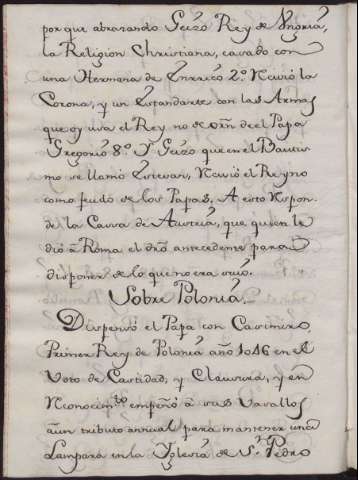 por que abrazando Geizo Rey de Ungria,
la Religion Christiana, casado con
una Hermana de Enrrico 2.º Recivió la
Corona, y un Estandarte con las Armas
que oy usa el Rey no de orñ de el Papa
Gregorio 8.º Y Geizo que en el Bautis
mo se llamó Estevan, Recivió el Reyno
como feudo de los Papas. A esto Respon
de la Cassa de Austria, que quien le
dio a Roma el dró antecedente para
disponer de lo que no era suio.
Sobre Polonia.
Dispensó el Papa con Casimiro,
Primer Rey de Polonia año 1046 en el
Voto de Castidad, y Clausura, y en
Reconocim.to empeñó a sus Vasallos
a un tributo annual para mantener una
Lampara en la Yglesia de S.n Pedro